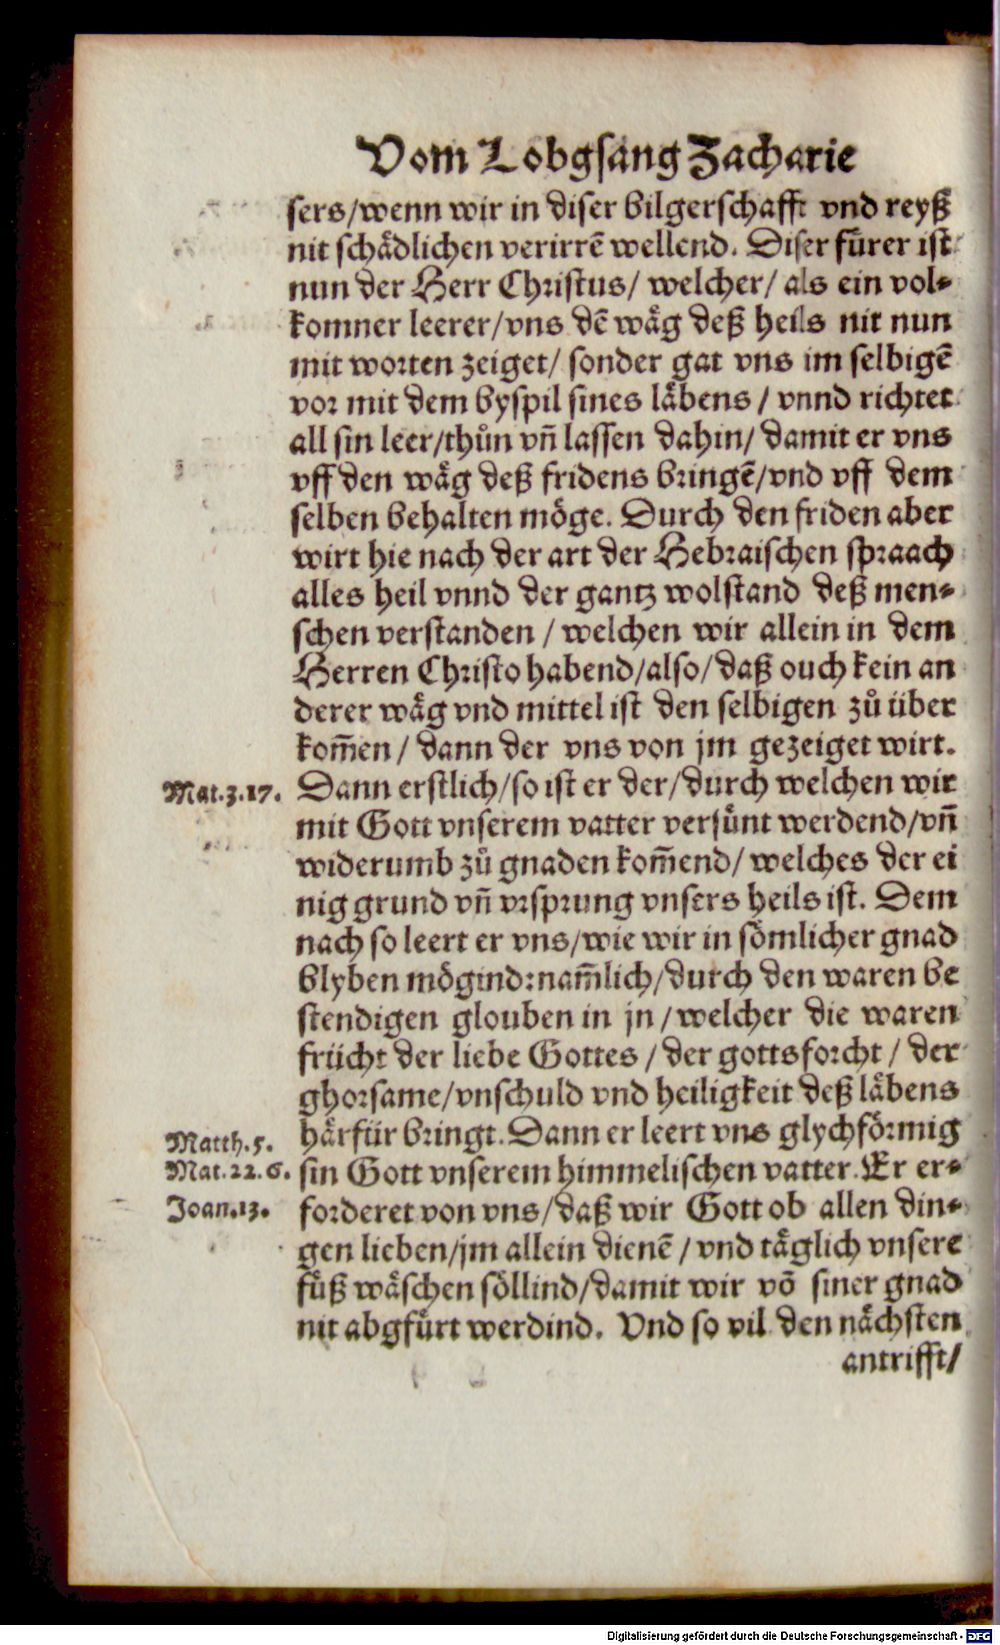 Vom Lobgsang Zacharie
sers/wenn wir in diser bilgerschafft vnd reyß
nit schaͤdlichen verirrē wellend. Diser fuͤrer ist
nun der Herr Christus/ welcher/ als ein vol⸗
komner leerer/vns dē waͤg deß heils nit nun
mit worten zeiget/ sonder gat vns im selbigē
vor mit dem byspil sines laͤbens / vnnd richtet
all sin leer/thuͦn vn̄ lassen dahin/ damit er vns
vff den waͤg deß fridens bringē/vnd vff dem
selben behalten moͤge. Durch den friden aber
wirt hie nach der art der Hebraischen spraach
alles heil vnnd der gantz wolstand deß men⸗
schen verstanden / welchen wir allein in dem
Herren Christo habend/also/daß ouch kein an
derer waͤg vnd mittel ist den selbigen zuͦ über
kom̄en / dann der vns von jm gezeiget wirt.
Mat.3.17. Dann erstlich/so ist er der/durch welchen wir
mit Gott vnserem vatter versuͤnt werdend/vn̄
widerumb zuͦ gnaden kom̄end/ welches der ei
nig grund vn̄ vrsprung vnsers heils ist. Dem
nach so leert er vns/wie wir in soͤmlicher gnad
blyben moͤgind:nam̄lich/durch den waren be
stendigen glouben in jn/welcher die waren
frücht der liebe Gottes / der gottsforcht / der
ghorsame/vnschuld vnd heiligkeit deß laͤbens
Matth.5. haͤrfür bringt. Dann er leert vns glychfoͤrmig
Mat.22.6. sin Gott vnserem himmelischen vatter. Er er⸗
Joan.13. forderet von vns/daß wir Gott ob allen din⸗
gen lieben/jm allein dienē / vnd taͤglich vnsere
fuͤß waͤschen soͤllind/damit wir vō siner gnad
nit abgfuͤrt werdind. Vnd so vil den naͤchsten
antrifft/
Digitalisierung gefördert durch die Deutsche Forschungsgemeinschaft - DFG